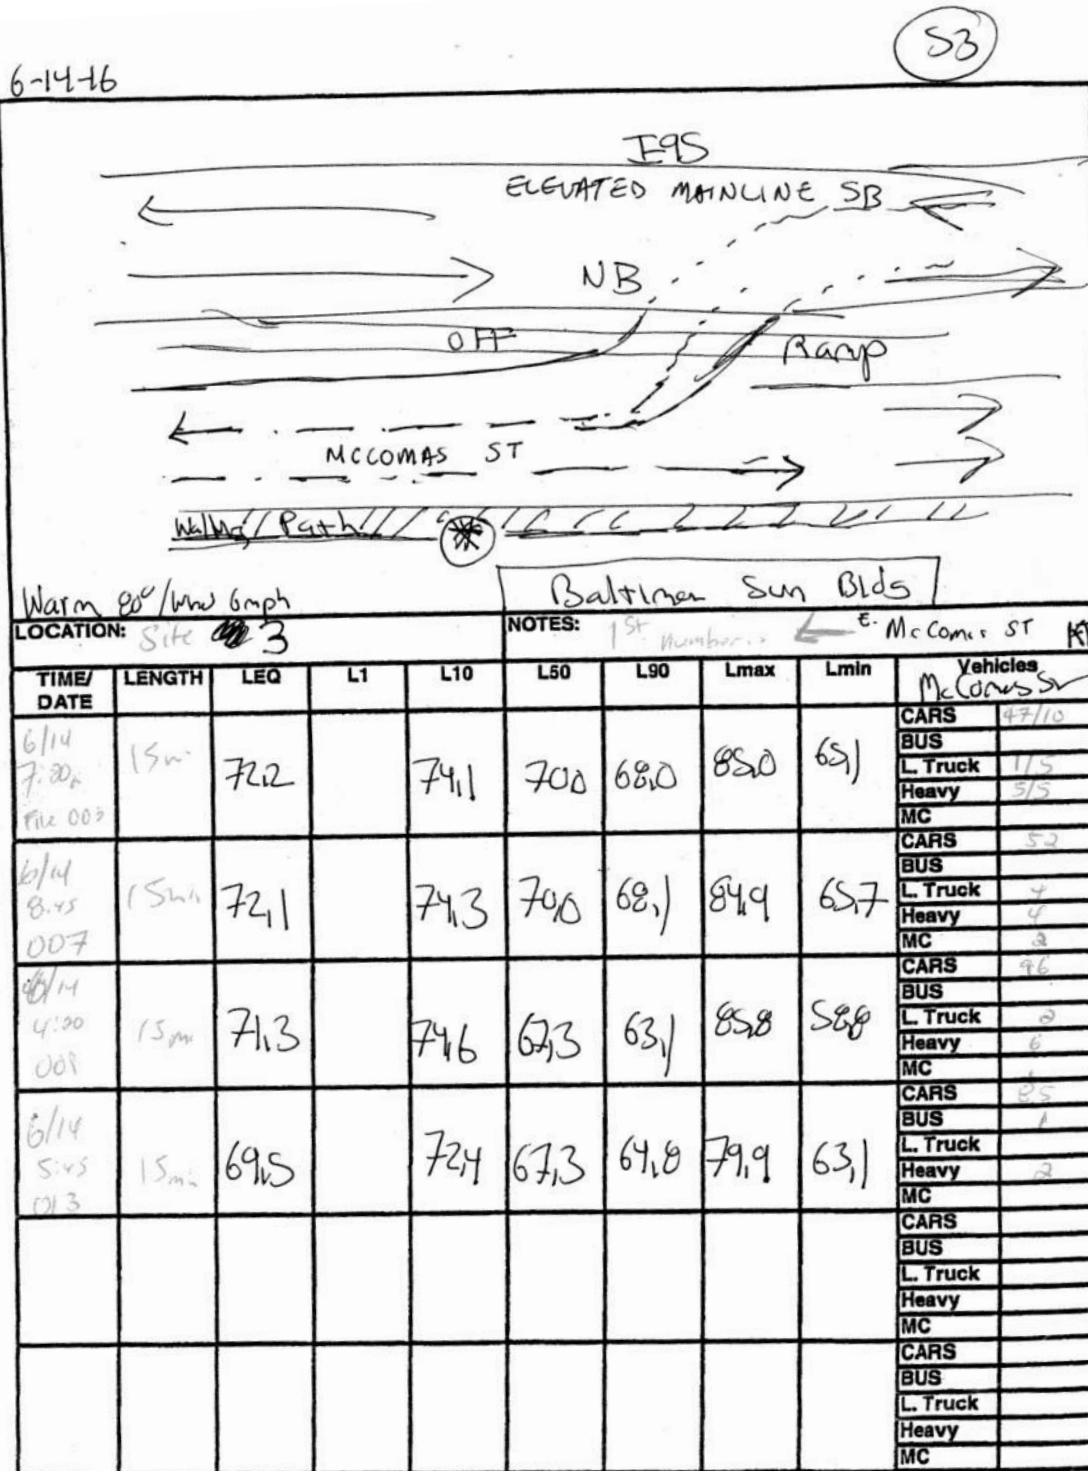 S3
6-14-16
I95
ELEVATED MAINLINE SB
NB
OFF Ramp
MCCOMAS ST
Walking Path
Warm 80° / wind 6mph
Baltimor Sun Bldg
LOCATION: Site 3 NOTES: 1st number.. ← E. McComas ST
TIME/ DATE LENGTH LEQ L1 L10 L50 L90 Lmax Lmin Vehicles McComas St
6/14 7:20 File 003 15m 72.2 74.1 70.0 68.0 85.0 65.1
CARS 47/10
BUS
L. Truck 1/5
Heavy 5/5
MC
6/14 8:45 007 15min 72.1 74.3 70.0 68.1 84.9 65.7
CARS 52
BUS
L. Truck 4
Heavy 4
MC 2
6/14 4:20 15m 71.3 74.6 67.3 63.1 85.8 58.8
CARS 96
BUS
L. Truck 2
Heavy 6
MC
6/14 5:45 013 15min 69.5 72.4 67.3 64.8 79.9 63.1
CARS 85
BUS 1
L. Truck
Heavy 2
MC
CARS
BUS
L. Truck
Heavy
MC
CARS
BUS
L. Truck
Heavy
MC